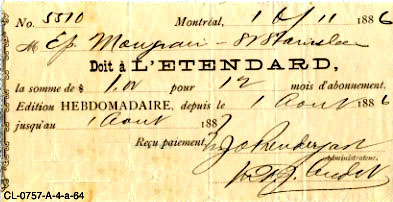 No. 5510 Montréal, 1 Oct 11 1886
M Ep. - St Stanislas
Doit à L'ETENDARD,
la somme de $1.00 pour 12 mois d'abonnement.
Edition HEBDOMADAIRE, depuis le 1 Aout 1886
jusqu'au 1 Aout 1887
Reçu paiement,
Administrateur.
CL-0757-A-4-a-64